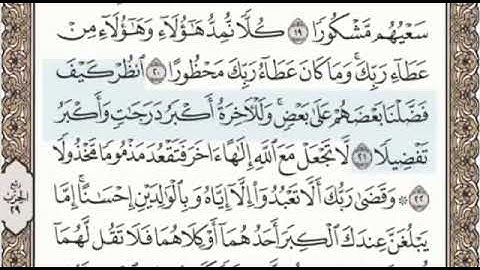 سَعْيُهُم مَّشْكُورًا ١٩ كُلًّا نُّمِدُّ هَٰٓؤُلَآءِ وَهَٰٓؤُلَآءِ مِنْ
عَطَآءِ رَبِّكَ ۚ وَمَا كَانَ عَطَآءُ رَبِّكَ مَحْظُورًا ٢٠ ٱنظُرْ كَيْفَ
فَضَّلْنَا بَعْضَهُمْ عَلَىٰ بَعْضٍ ۚ وَلَلْءَاخِرَةُ أَكْبَرُ دَرَجَٰتٍ وَأَكْبَرُ
تَفْضِيلًا ٢١ لَّا تَجْعَلْ مَعَ ٱللَّهِ إِلَٰهًا ءَاخَرَ فَتَقْعُدَ مَذْمُومًا مَّخْذُولًا
٢٢ ۞ وَقَضَىٰ رَبُّكَ أَلَّا تَعْبُدُوٓا۟ إِلَّآ إِيَّاهُ وَبِٱلْوَٰلِدَيْنِ إِحْسَٰنًا ۚ إِمَّا
يَبْلُغَنَّ عِندَكَ ٱلْكِبَرَ أَحَدُهُمَآ أَوْ كِلَاهُمَا فَلَا تَقُل لَّهُمَآ
ربع
الحزب
٢٩